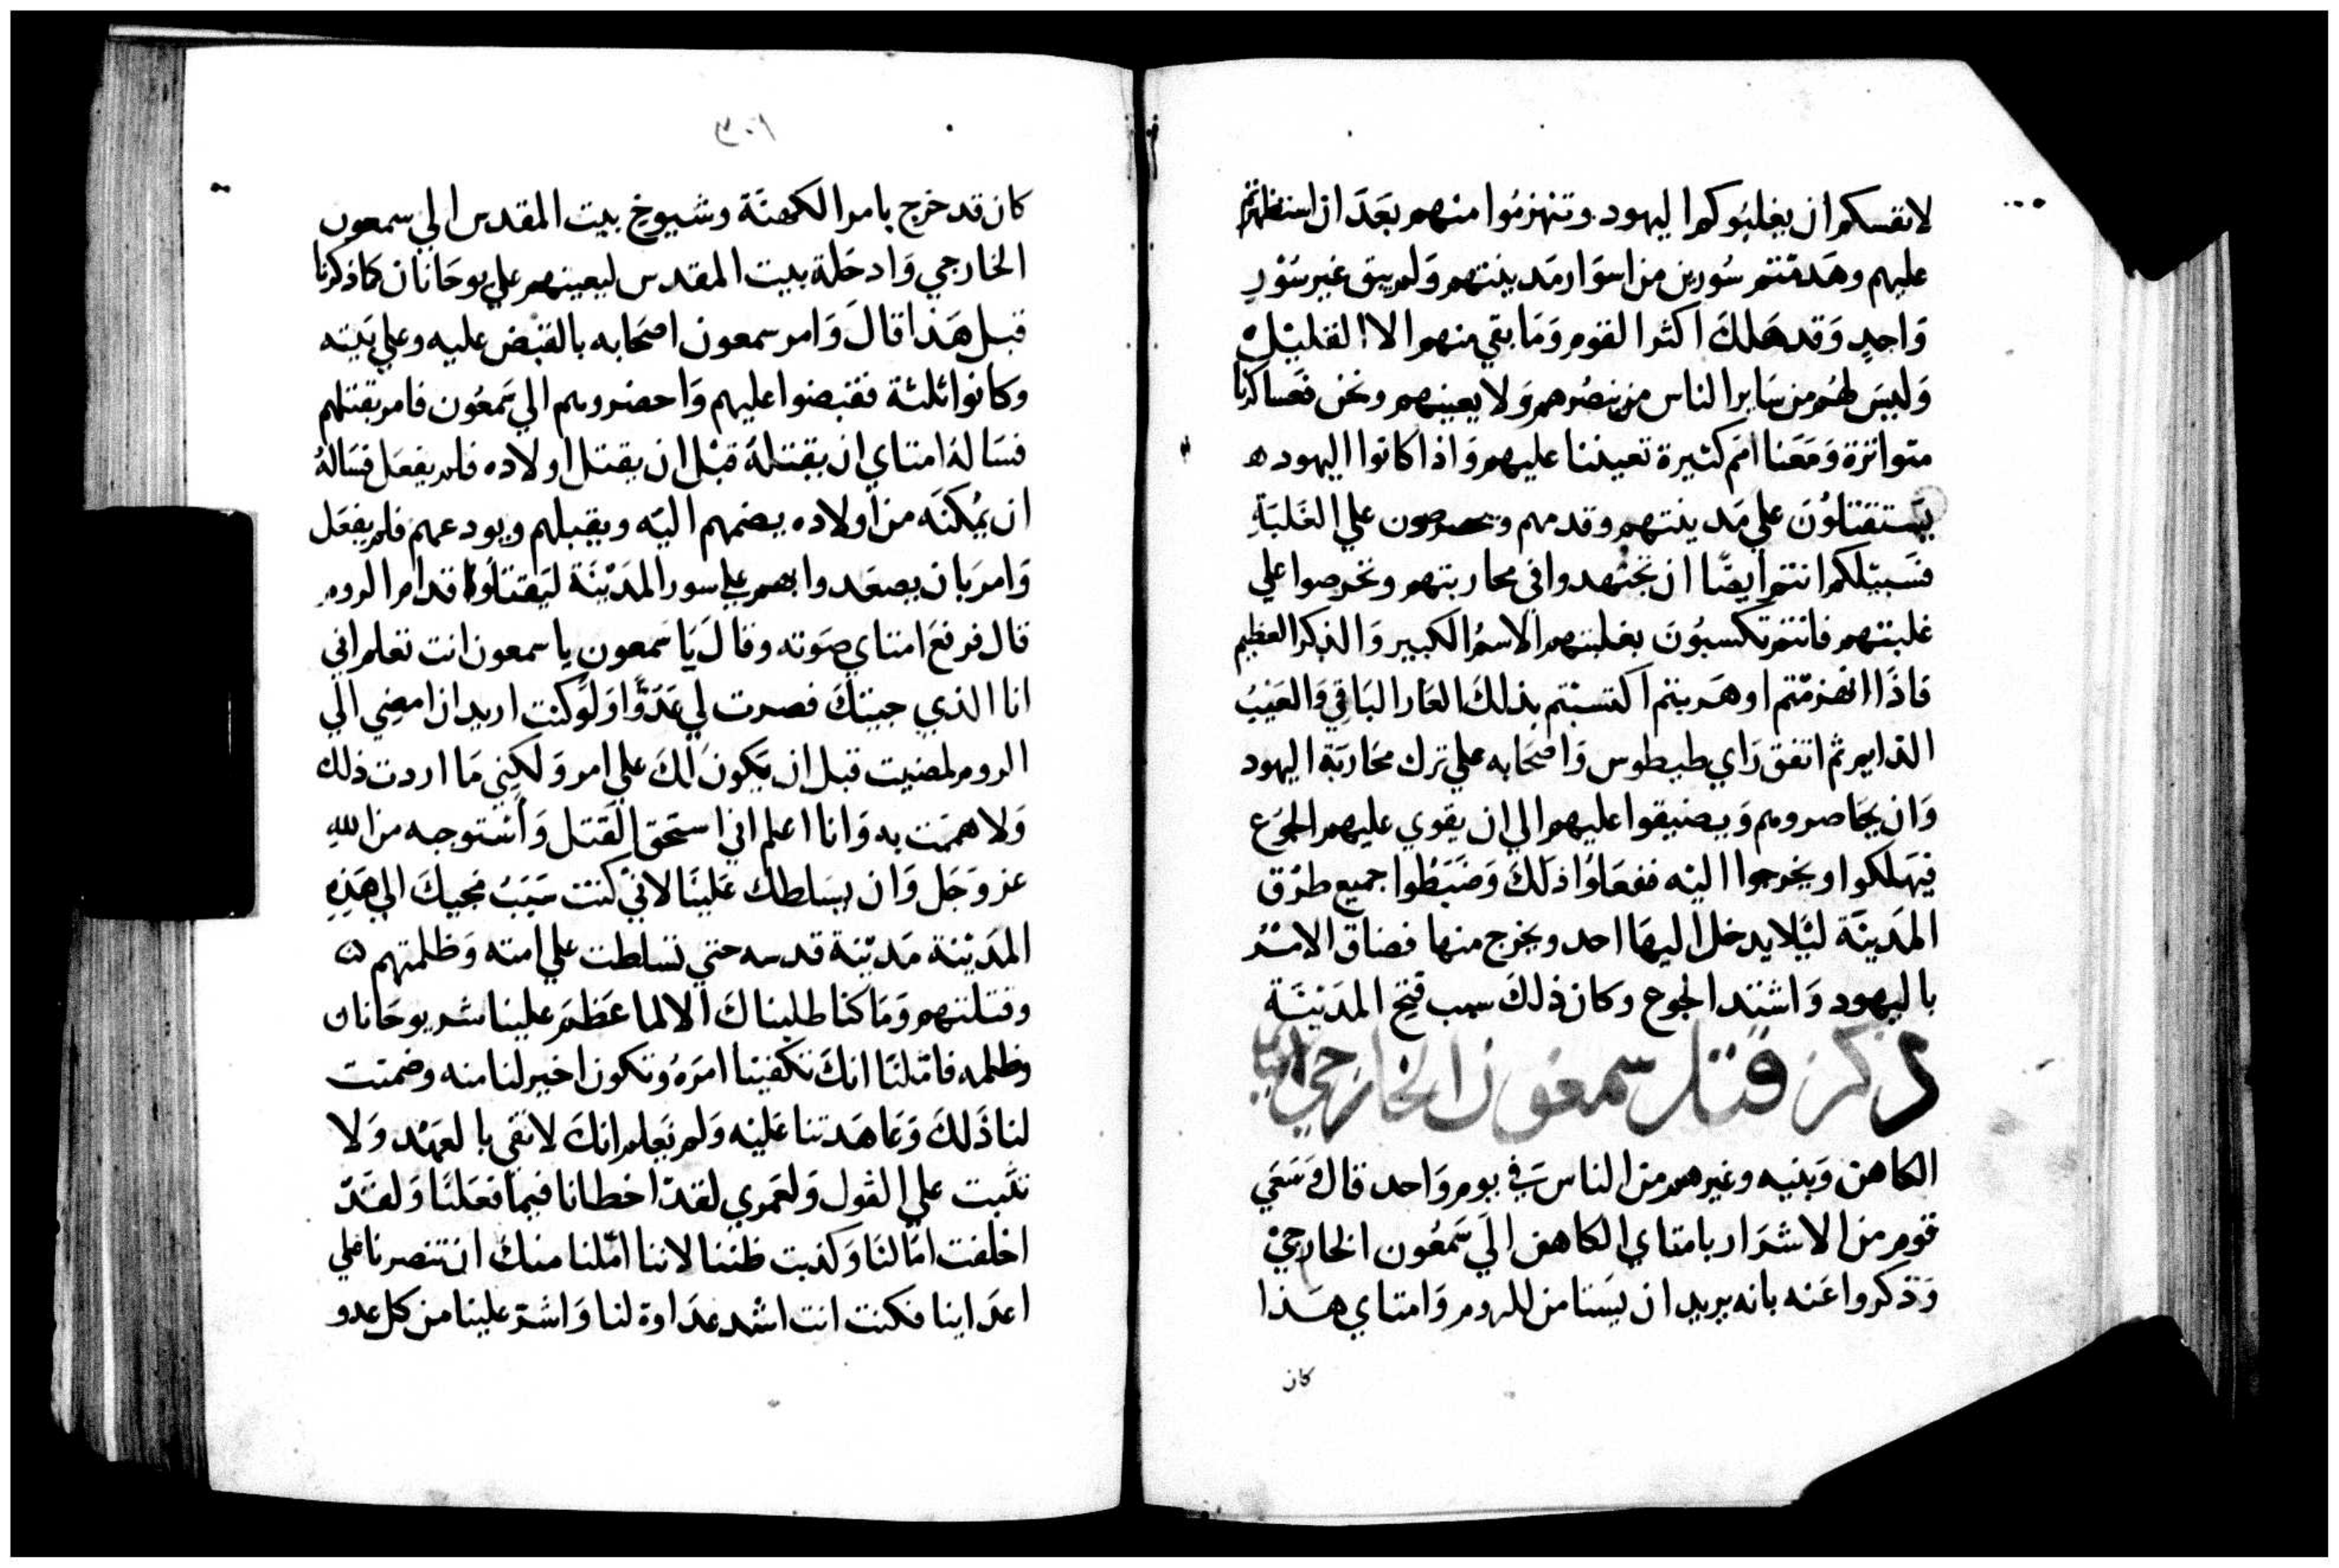 لانفسكم ان يغلبُوكم اليهود وتنهزمُوا منهم بعَدَ ان استظهرتم
عليهم وهَدمْتم سُورين من اسوَار مَدينتهم وَلم يبق غير سَوْرٍ
وَاحِدٍ وَقد هَلكَ اكثر القوم وَمَا بقي منهم الا القليْل
وَليسَ لهُم من سَاير الناس من ينصُرهم وَلا يعينهم ونحن فعَساكرنا
متواترة وَمَعَنا امَم كثيرة تعيننا عليهم وَاذا كانوا اليهود
يَستقتلوُنَ علي مَدينتهم وقدسهم ويحرصون علي الغَلبَةِ
فسَبيْلكم انتم ايضًا ان تجتهدوا في محاربتهم وتحرصوا علي
غلبتهم فانتم تكسبُونَ بغلبتهم الاسمُ الكبير وَالذكر العظيم
فاذَا انهزمْتم او هَربتم اكتسبْتم بذلكَ العَار البَاقِي وَالعَيْبُ
الدايم ثم اتفق رَاي طيطوس وَاصحَابه علي ترك محَاربَة اليهود
وَان يحَاصروهم وَيضيقوا عليهم الي ان يقوي عليهم الجوَع
فيهَلكوا او يخرجوا اليْه ففعَلوُا ذلكَ وَضَبَطُوا جميع طرُق
المَدينَة ليَلا يدخل اليهَا احد ويخرج منها فضاق الامْرُ
باليهود وَاشتد الجوع وكان ذلكَ سبب فتح المَديْنَة
ذكر قتل سمعون الخارجي امتاي
الكاهن وَبنيه وغيرهم من الناسَ في يوم وَاحد قالَ سَعَي
قوم من الاشرَار بامتاي الكاهن الَي سَمعُون الخارجيْ
وَذكروا عَنه بانه يريد ان يَستامن للروم وَامتاي هَذا
كان
٣٠١
كان قد خرج بامر الكهنَة وشيوخ بيت المقدس الي سمعون
الخارجي وَادخَله بيت المقدس ليعينهم علي يوحَانان كما ذكرنا
قبل هَذا قالَ وَامر سمعون اصحَابه بالقبْض عليه وعلي بَنيه
وكانوا ثلثة فقبضوا عليهم وَاحضروهم الي سَمعُون فامر بقتلهم
فسَاله امتاي ان يقتلهُ قبْل ان يقتل اولاده فلم يفعَل فسَالهُ
ان يُمكنَه من اولاده يضمهم اليْه ويقبلهم ويودعهم فلم يفعَل
وَامرَ بان يصعَدوا بهم علي سور المَديْنَة ليَقتلوُا قدام الروم
قال فرفعَ امتاي صَوته وقالَ يَا سَمعون يا سمعون انت تعلم اني
انا الذي جيتكَ فصرت لي عَدُوًّا وَلوْ كنت اريد ان امضِي الي
الروم لمضيت قبل ان يَكونَ لكَ علي امر وَلكِني مَا اردت ذلك
وَلا هممَت به وَانا اعلم اني استحَق القَتل وَأستوجبه من اللهِ
عز وَجَل وَان يسَلطك عَليْنَا لانيْ كنت سَبَبُ مجيكَ الي هَذِهِ
المَديْنة مَديْنة قدسه حتي تسلطت علي امته وَظلمتهم
وقتلتهم وَمَا كنا طلبناكَ الا لما عَظمَ علينا شر يوحَانان
وظلمه فامّلنَا انكَ تكفينا امرَهُ وتكون اخير لنا منه وضمنت
لنا ذَلكَ وَعَاهَدتنا عَليْه وَلم نَعلم انكَ لا تَفي بالعَهْد وَلا
تثبت علي القول وَلعَمري لقدْ اخطانا فيما فعَلنَا وَلقَدْ
اخلفت امَالنَا وَكذبت ظنّنا لاننا امّلنا منكَ ان تنصرنا علي
اعدَاينا فكنت انت اشد عدَاوة لنا وَاشر علينا من كل عدو